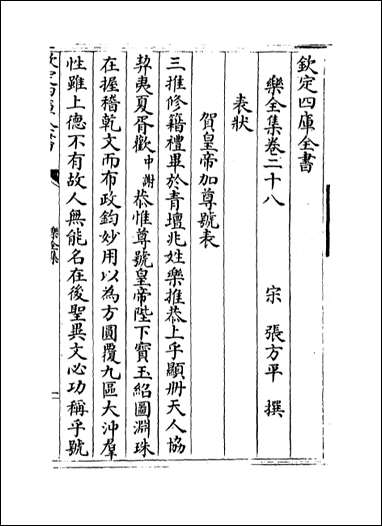 欽定四庫全書
樂全集卷二十八
宋 張方平 撰
表狀
賀皇帝加尊號表
三推修籍禮畢於青壇兆姓樂推恭上乎顯冊天人協
契夷夏胥歡中謝恭惟尊號皇帝陛下寶玉紹圖淵珠
在握稽乾文而布政鈞妙用以為方圓覆九區大沖羣
性雖上德不有故人無能名在後聖異文必功稱乎號
欽定四庫全書
樂全集